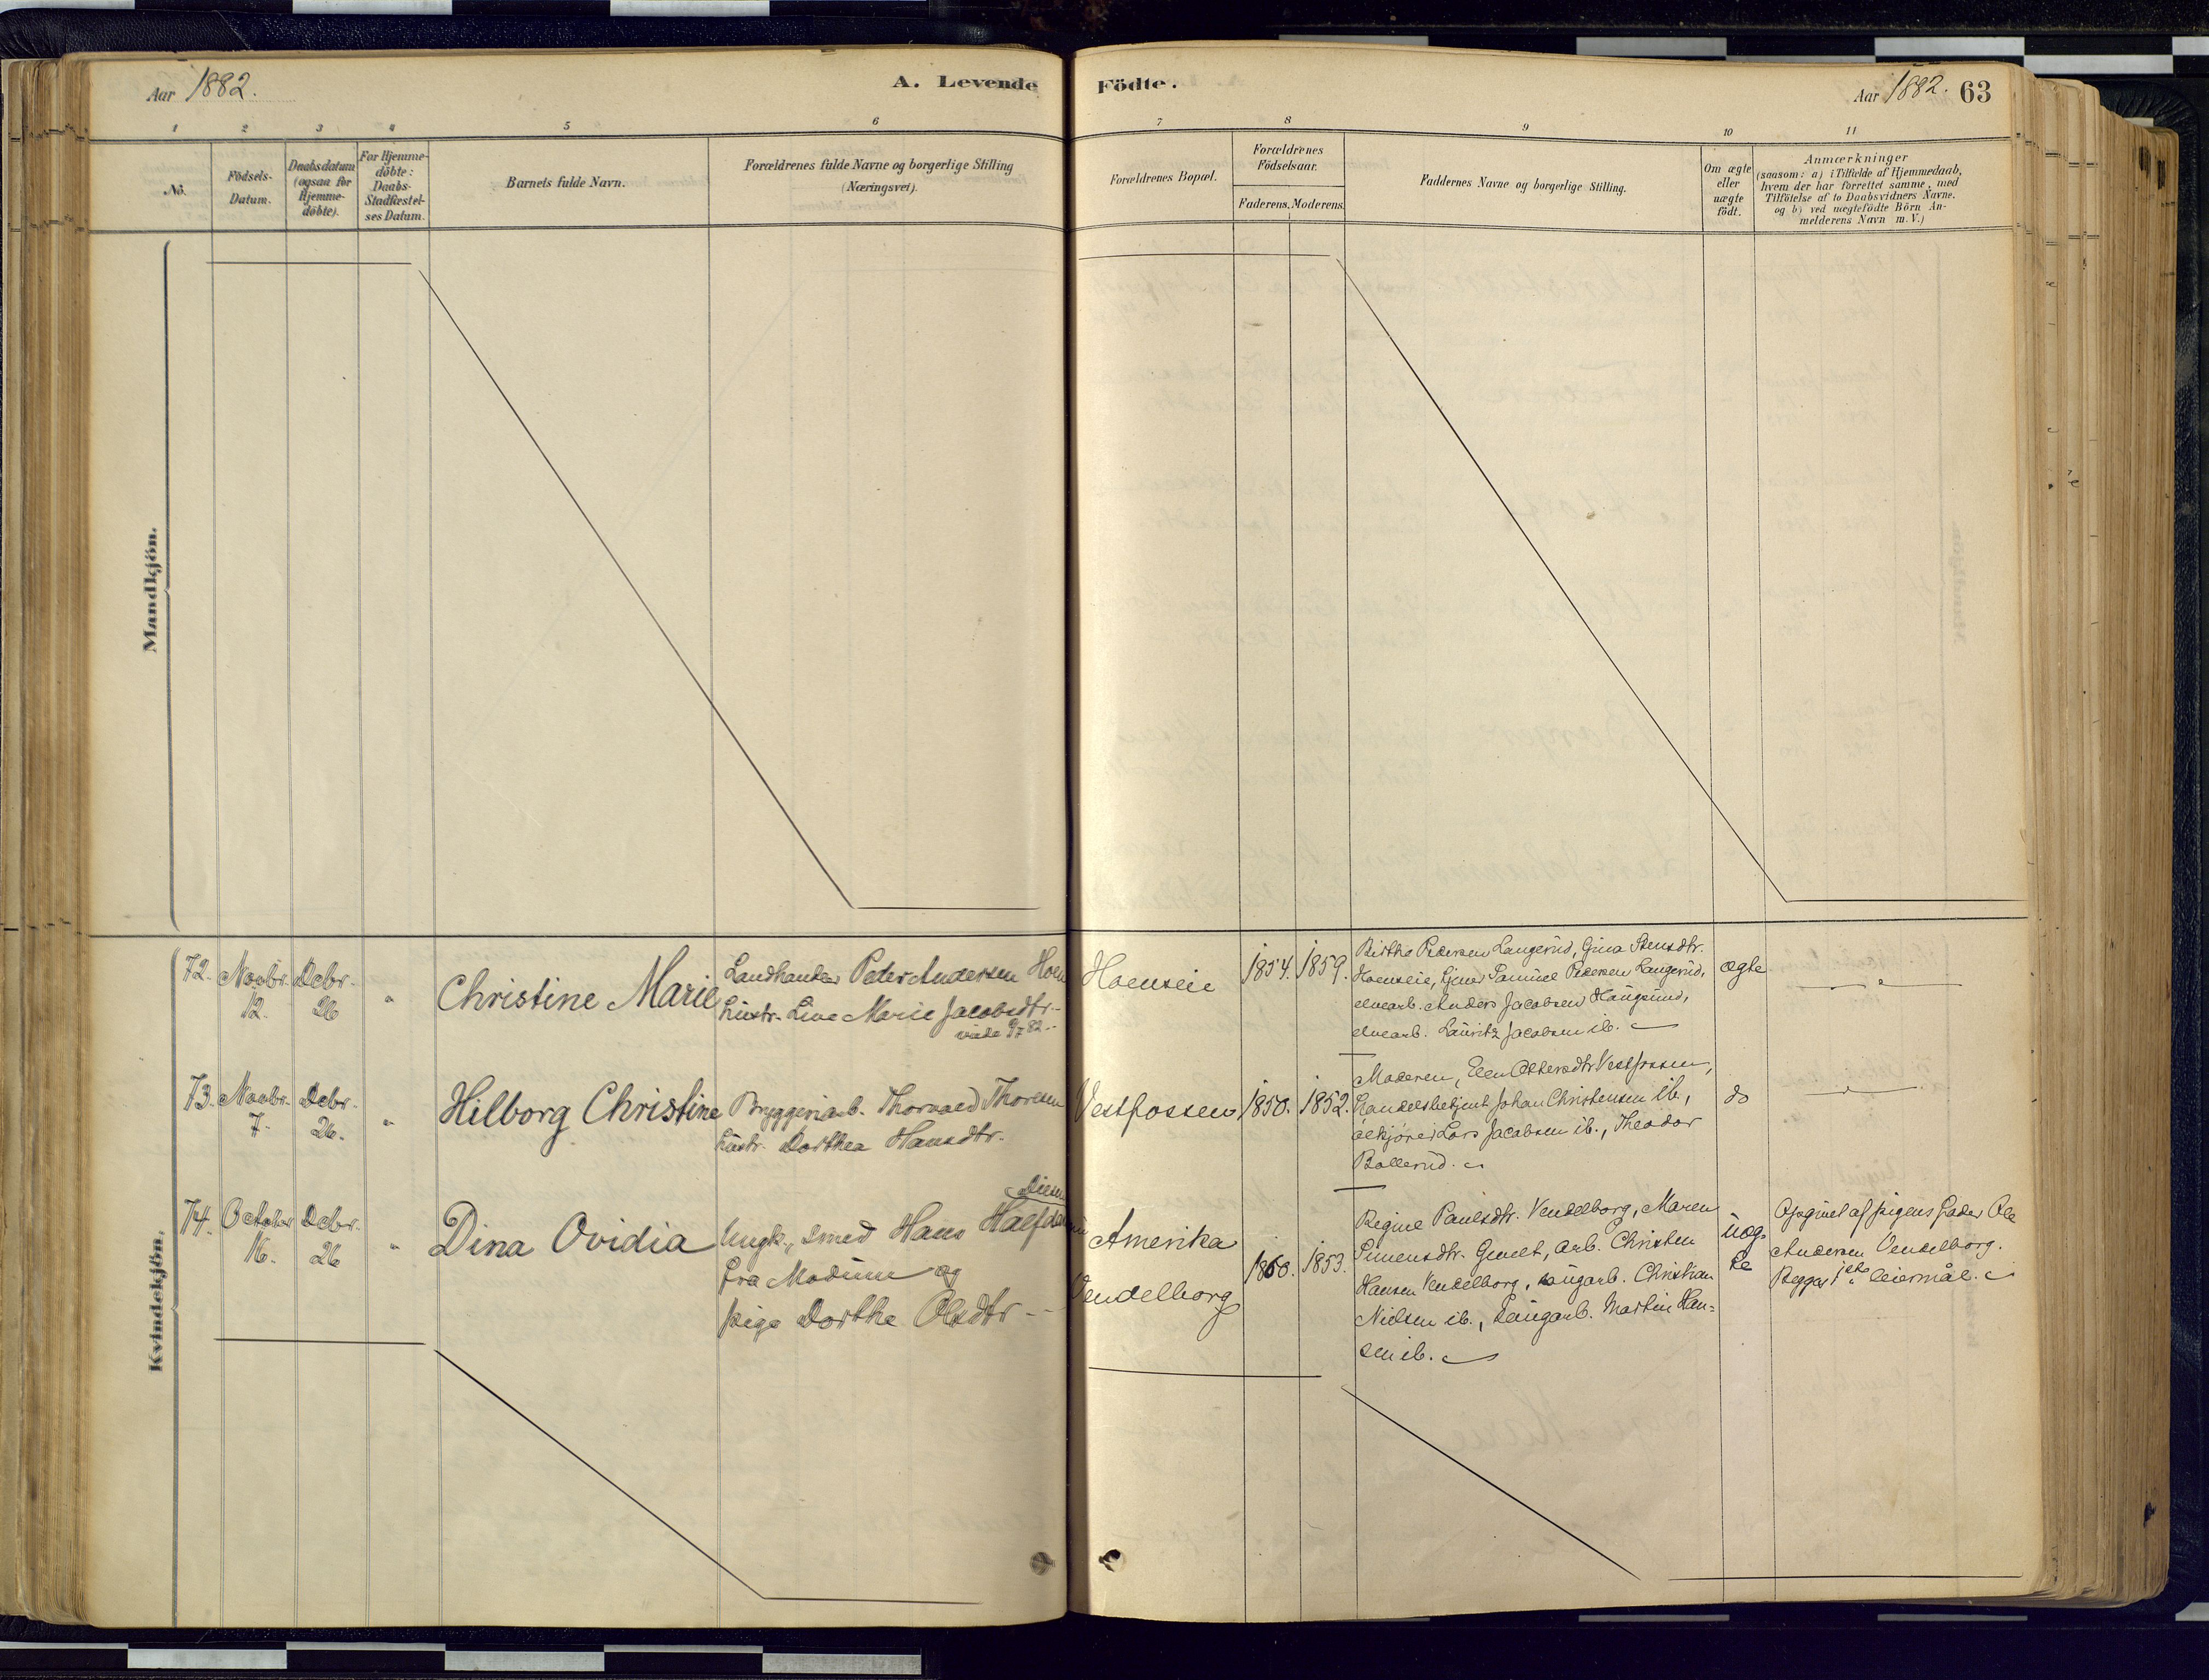 Aar 1882.
A. Levende
Födte.
Aar 1882. 63
1 2 3 4 5 6 7 8 9 10 11
No.
Födsels-
Datum.
Daabsdatum
(ogsaa for
Hjemme-
döbte).
For Hjemme-
döbte:
Daabs-
Stadfæstel-
ses Datum.
Barnets fulde Navn.
Forældrenes fulde Navne og borgerlige Stilling
(Næringsvei).
Forældrenes Bopæl.
Forældrenes
Födselsaar.
Faderens. Moderens.
Faddernes Navne og borgerlige Stilling.
Om ægte
eller
uægte
födt.
Anmærkninger
(saasom: a) i Tilfælde af Hjemmedaab,
hvem der har forrettet samme, med
Tilföielse af to Daabsvidners Navne.
og b) ved uægtefödte Börn An-
melderens Navn m. V.)
Mandkjön.
Kvindekjön.
72. Novbr. 12. Debr. 26 " Christine Marie
Landhandler Peder Andersen Hoen
hustr. Line Marie Jacobsdtr.
Hoenseie 1854. 1859.
Birthe Pedersen Langerud, Gina Stensdtr.
Hoenseie, Ejner Samuel Pedersen Langerud,
elvearb. Anders Jacobsen Haugsund,
elvearb. Lauritz Jacobsen ib.
ægte
73. Novbr. 7. Debr. 26. " Hilborg Christine
Bryggeriarb. Thorvald Thoresen
hustr. Dorthea Hansdtr.
Vestfossen 1850. 1852.
Moderen, Elen Ottersdtr Vestfossen,
Handelsbetjent Johan Christensen ib.,
ölkjörer Lars Jacobsen ib., Theodor
Bollerud.
do
74. October 16. Debr. 26 " Dina Ovidia
Ungk., smed Hans Halfdan
fra Modum og
pige Dorthe Olsdtr
Amerika
Vendelborg
1860. 1853.
Regine Paulsdtr. Vendelborg, Maren
Simensdtr. arb. Christen
Hansen Vendelborg, saugarb. Christian
Nielsen ib., Saugarb. Martin Han-
sen ib.
uæg-
te
Opgivet af pigens fader Ole
Andersen Vendelborg.
Begges 1ste leiermål.